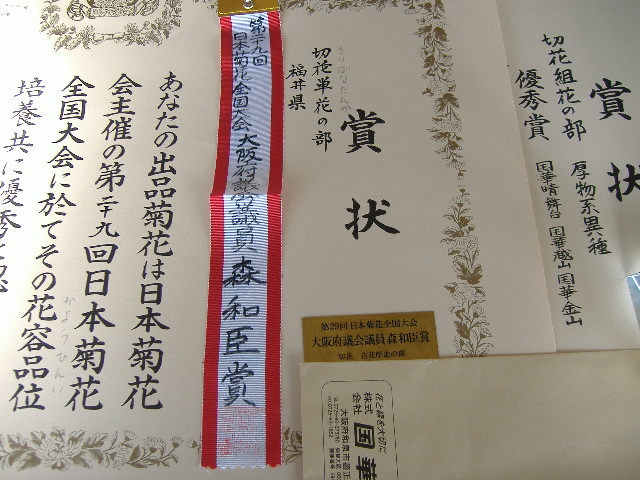 賞状
切花組花の部
優秀賞
厚物系異種
国華晴舞台 国華越山 国華金山
賞状
きりばなたんか
切花単花の部
福井県
第二十九回
日本菊花全国大会
大阪府議会議員 森和臣賞
あなたの出品菊花は日本菊花
会主催の第二十九回日本菊花
全国大会に於てその花容品位
かようひんい
培養共に優秀と
第29回日本菊花全国大会
大阪府議会議員 森和臣賞
切花 古花厚走の部
花と緑を大切に
株式会社 国華
大阪府和泉市